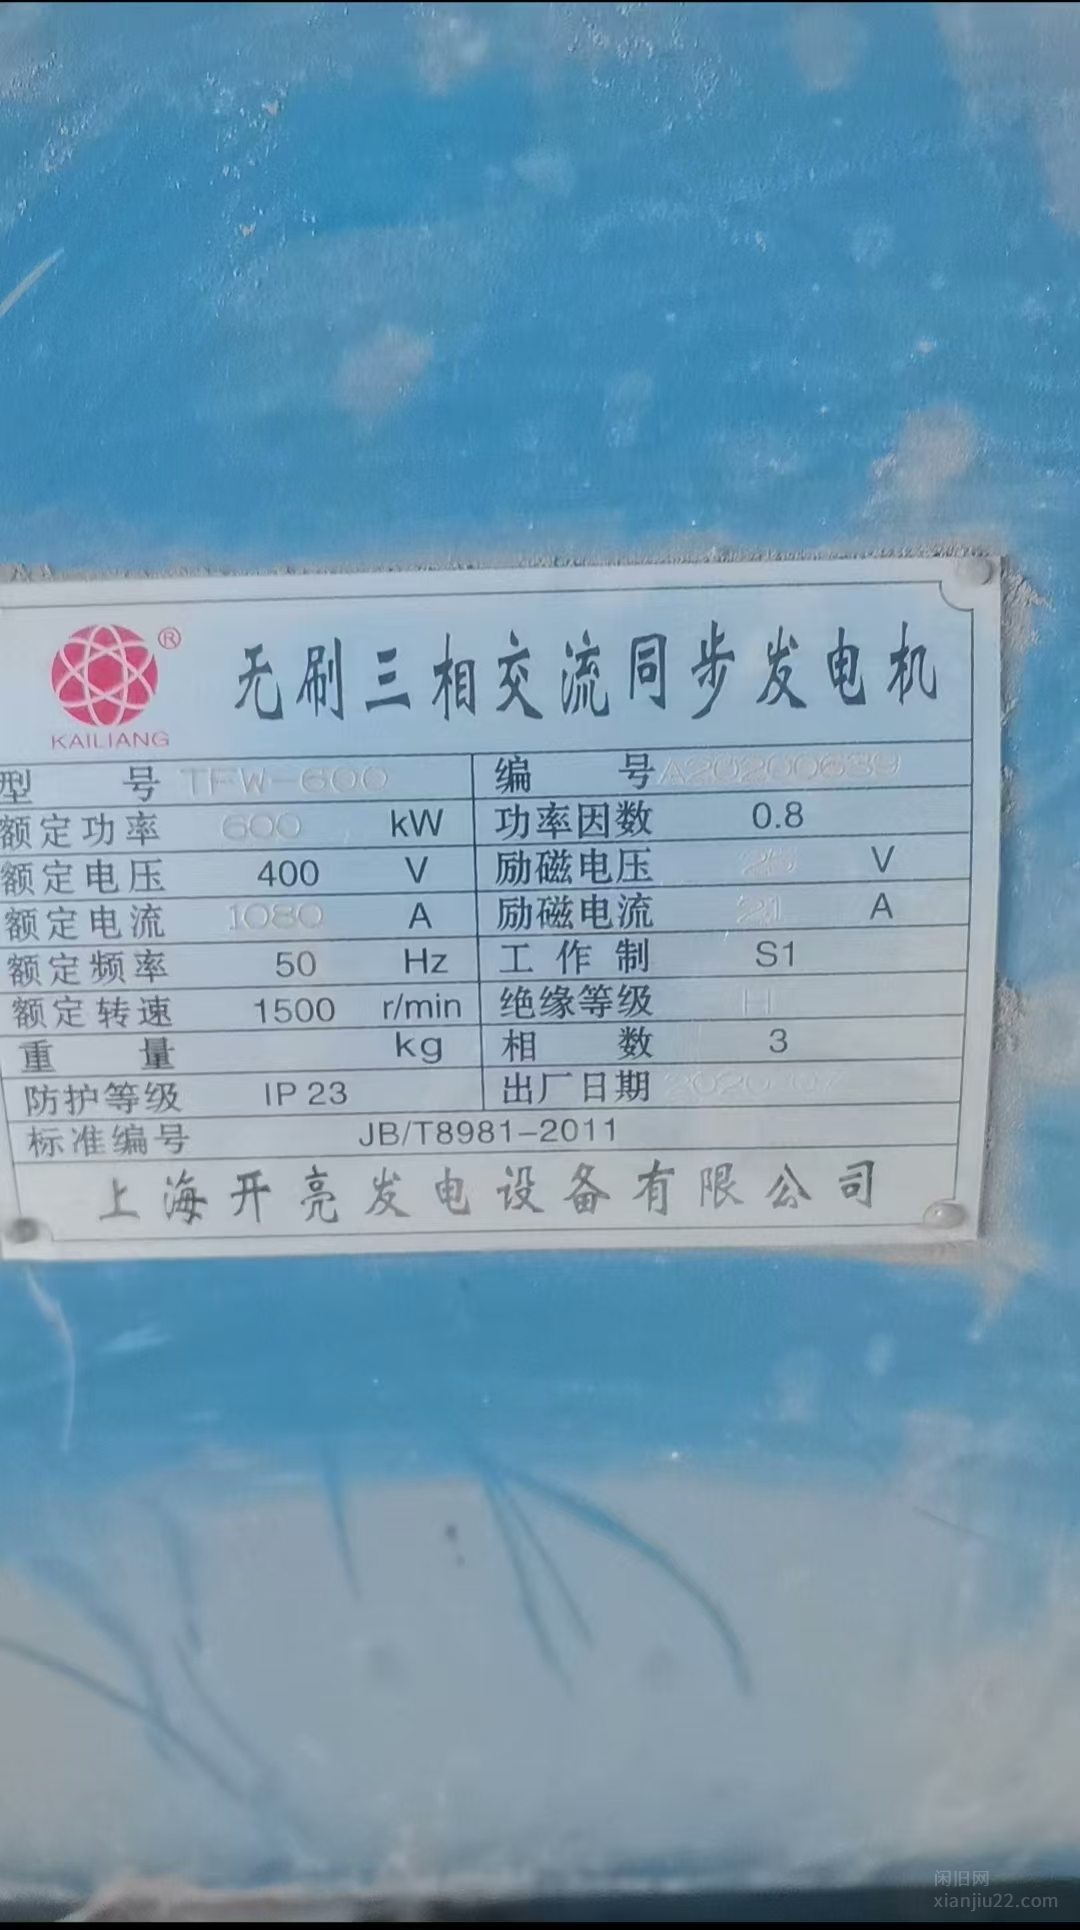 ®
KAILIANG
无刷三相交流同步发电机
型号 TFW-600 编号 A20200639
额定功率 600 kW 功率因数 0.8
额定电压 400 V 励磁电压 V
额定电流 1080 A 励磁电流 21 A
额定频率 50 Hz 工作制 S1
额定转速 1500 r/min 绝缘等级 H
重量 kg 相数 3
防护等级 IP23 出厂日期 2020
标准编号 JB/T8981-2011
上海开亮发电设备有限公司
闲旧网
xianjiu22.com